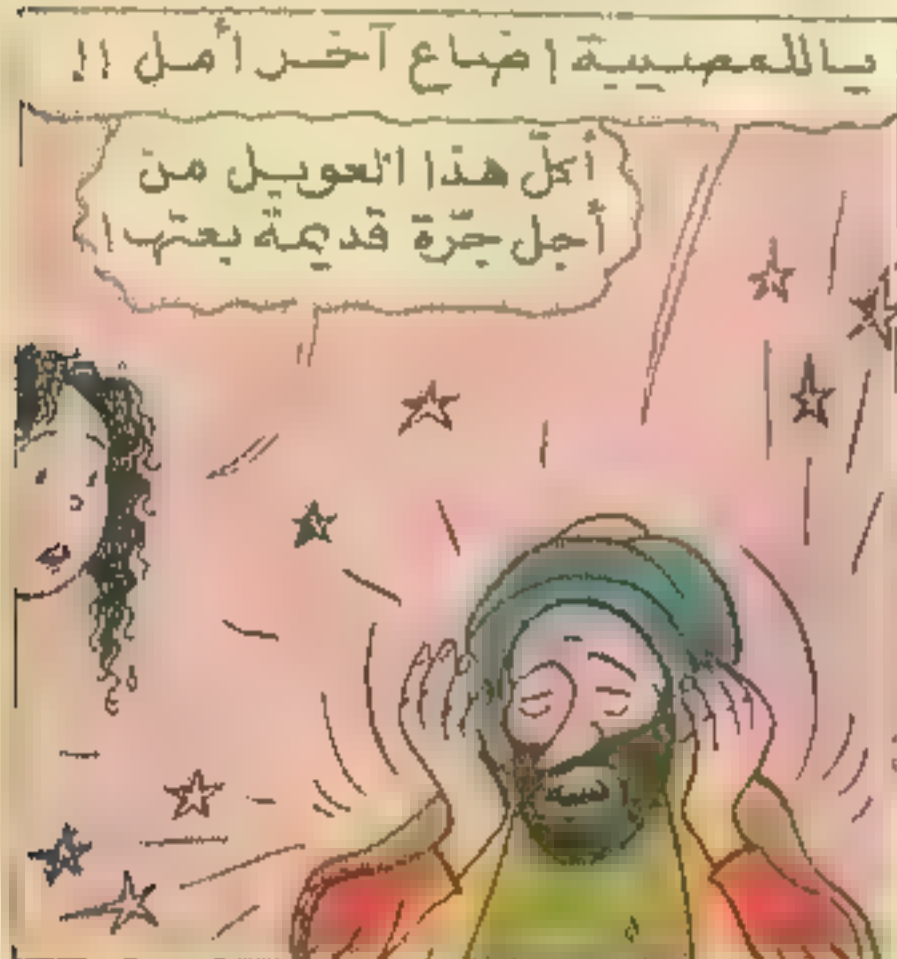 ياللمصيبة ! ضاع آخر أمل !!
أكلّ هذا العويل من
أجل جرّة قديمة بعتها !